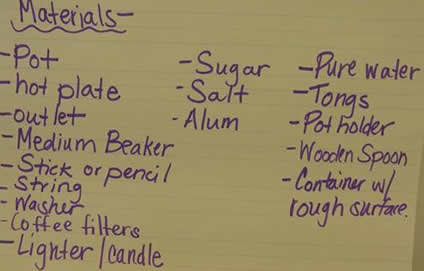 Materials-
-Pot
-hot plate
-outlet
-Medium Beaker
-Stick or pencil
-String
-Washer
-Coffee filters
-Lighter/candle
-Sugar
-Salt
-Alum
-Pure water
-Tongs
-Pot holder
-Wooden Spoon
-Container w/
rough surface.